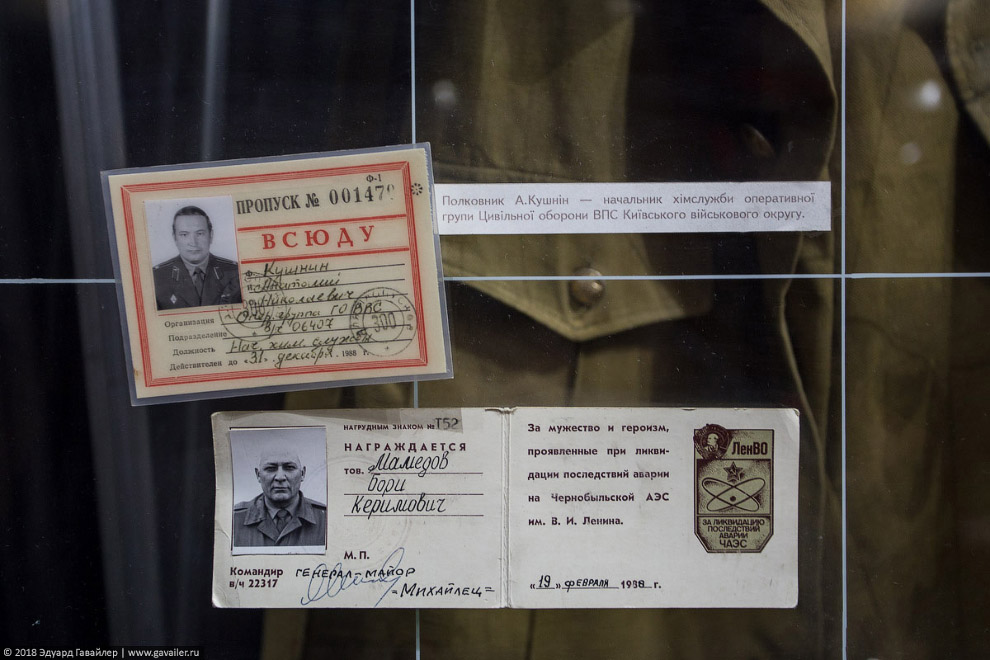 Ф-1
ПРОПУСК № 001479
ВСЮДУ
Кушнин
Анатолий
Николаевич
Организация Опер. группа ГО ВВС
Подразделение в/ч 06407
Должность Нач. хим. службы
Действителен до „31" декабря 1988 г.
300
300
Полковник А.Кушнін — начальник хімслужби оперативної
групи Цивільної оборони ВПС Київського військового округу.
НАГРУДНЫМ ЗНАКОМ № Т52
НАГРАЖДАЕТСЯ
тов. Мамедов
Бори
Керимович
М. П.
Командир ГЕНЕРАЛ-МАЙОР
в/ч 22317
=МИХАЙЛЕЦ=
За мужество и героизм,
проявленные при ликви-
дации последствий аварии
на Чернобыльской АЭС
им. В. И. Ленина.
«19» февраля 1988 г.
ЛенВО
ЗА ЛИКВИДАЦИЮ
ПОСЛЕДСТВИЙ
АВАРИИ
ЧАЭС
© 2018 Эдуард Гавайлер | www.gavailer.ru